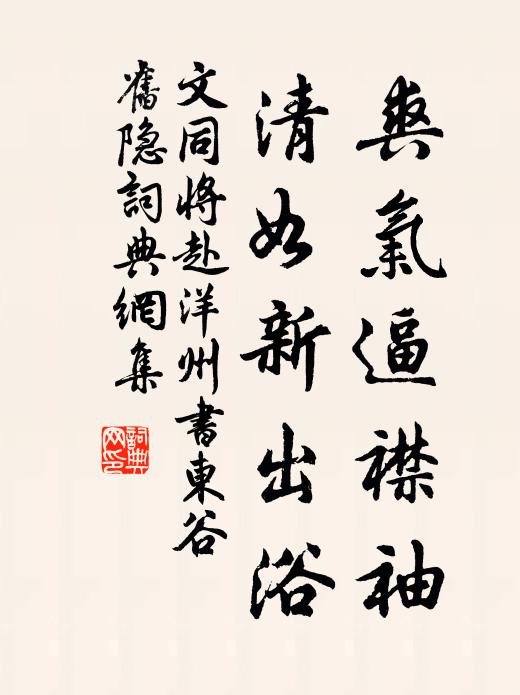 爽氣逼襟袖
清如新出浴
文同將赴洋州書東谷
舊隐詞典網集
詞典
网印